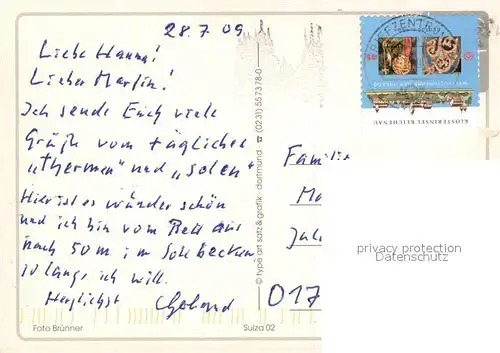 28.7.09
Liebe Hanna!
Lieber Martin!
Ich sende Euch viele
Grüße vom täglichen
"Thermen" und "solen"
Hier ist es wunder schön
und ich bin vom Bett aus
nach 50 m im Sole becken
so lange ich will.
Herzlichst
Foto Brünner
Sulza 02
© type art satz & grafik · dortmund · ☎ (0231) 557378-0
BRIEFZENTRUM
KLOSTERINSEL REICHENAU
Famili
Ma
Jul
017
privacy protection
Datenschutz